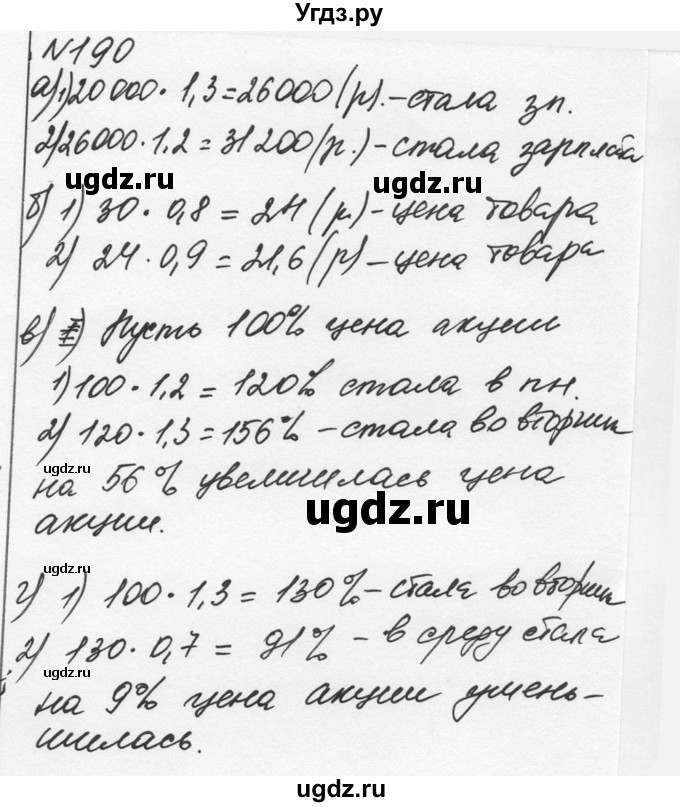 Угдз.ру
N190
а) 1) 20 000 · 1,3 = 26000 (р). – стала зп.
2) 26000 · 1,2 = 31 200 (р.) – стала зарплата
ugdz.ru ugdz.ru
б) 1) 30 · 0,8 = 24 (р.) – цена товара
2) 24 · 0,9 = 21,6 (р) – цена товара
в) Пусть 100% цена акции
1) 100 · 1,2 = 120% стала в пн.
2) 120 · 1,3 = 156% – стала во вторник
ugdz.ru
на 56% увеличилась цена
ugdz.ru
акции.
ugdz.ru
г) 1) 100 · 1,3 = 130% – стала во вторник
2) 130 · 0,7 = 91% – в среду стала
ugdz.ru
на 9% цена акции умень-
шилась.
ugdz.ru